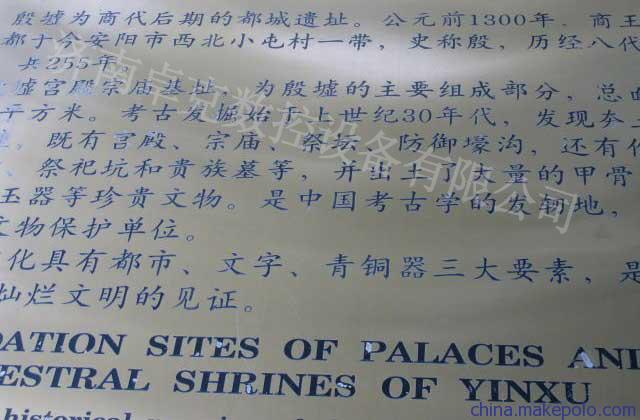 殷墟为商代后期的都城遗址。公元前1300年，商王
都于今安阳市西北小屯村一带，史称殷，历经八代
共255年
墟宫殿宗庙基址，为殷墟的主要组成部分，总面
平方米。考古发掘始于上世纪30年代，发现参
既有宫殿、宗庙、祭坛、防御壕沟，还有作
、祭祀坑和贵族墓等，并出土了大量的甲骨
玉器等珍贵文物。是中国考古学的发轫地，
文物保护单位。
化具有都市、文字、青铜器三大要素，是
灿烂文明的见证。
DATION SITES OF PALACES AND
ESTRAL SHRINES OF YINXU
historical
济南卓克数控设备有限公司
china.makepolo.com